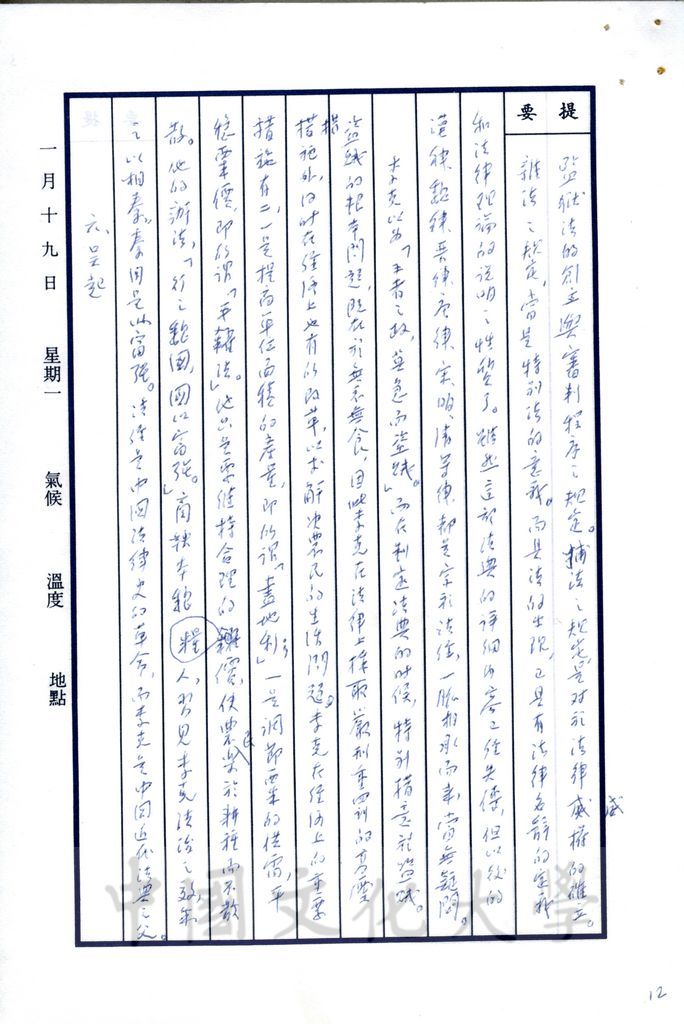 提要
監獄法的創立與審判程序之規定。捕法之規定是對於法律威權的確立。
雜法之規定,當是特別法的意義。而具法的出現,已具有法律名辭的定義
和法律理論的說明之性質了。雖然這部法典的詳細內容已經失傳,但以後的
漢律、魏律、晉律、唐律、宋、明、清等律,都是宗於法經,一脈相承而來,當無疑問。
李克以為「王者之政,莫急而盜賊」。而在制定法典的時候,特別措意於盜賊。
盜賊的根本問題,既在於無衣無食,因此李克在法律上採取嚴刑重罰的高壓
措施外,同時在經濟上也有所改革,以求解決農民的生活問題。李克在經濟上的重要
措施有二,一是提高單位面積的產量,即所謂「盡地利」;一是調節粟的供需,平
穩粟價,即所謂「平糴法」。他只是要維持合理的糧價,使農民樂於耕種而不散
散。他的辦法,「行之魏國,國以富強。」商鞅本魏人,習見李克法治之效,
之以相秦。秦因是以富強。法經是中國法律史的革命,而李克是中國近代法學之父。
六呈起
一月十九日 星期一 氣候 溫度 地點
糧
威
中國文化大學
12